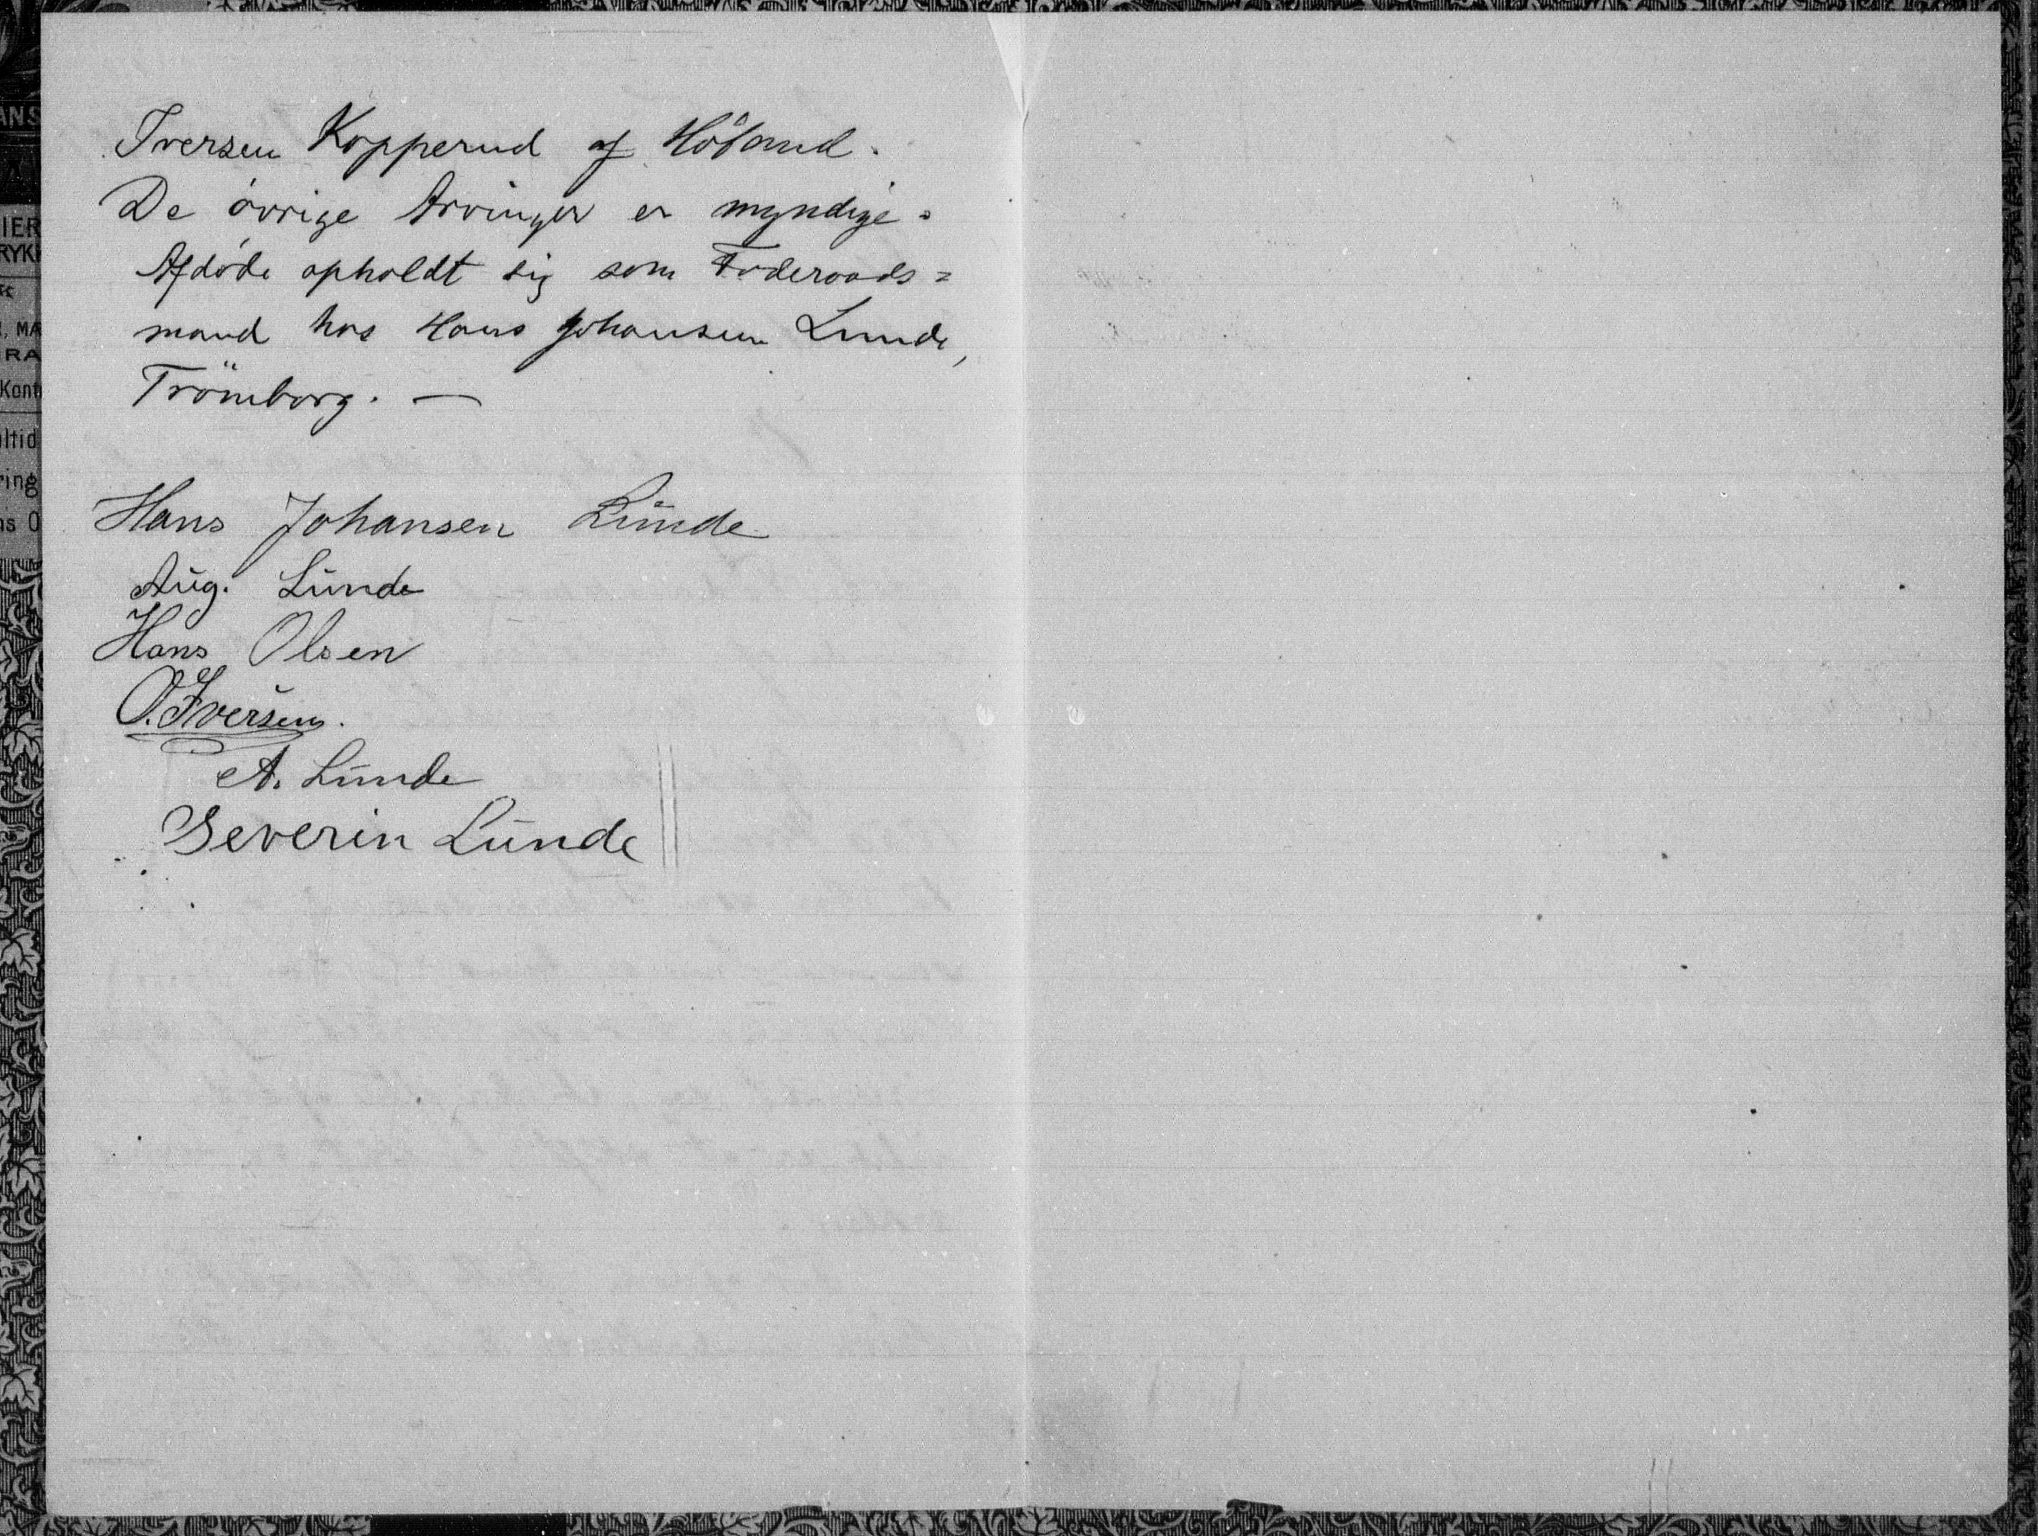 Iversen Kopperud af Höland.
De övrige Arvinger er myndige.
Afdøde opholdt sig som Foderaads=
mand hos Hans Johansen Lunde,
Trömborg. —
Hans Johansen Lunde
Aug. Lunde
Hans Olsen
O. Iversen.
A. Lunde
Severin Lunde
ANS
IER
RYK
MA
RA
Kont
altid
ring